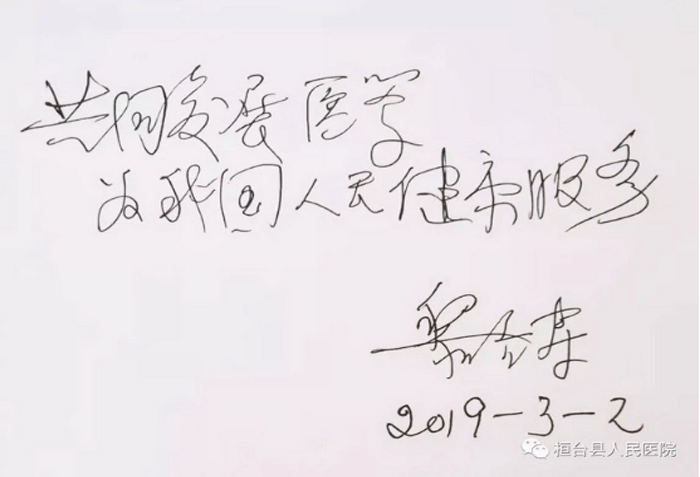 共同发展医学
为我国人民健康服务
2019-3-2
桓台县人民医院